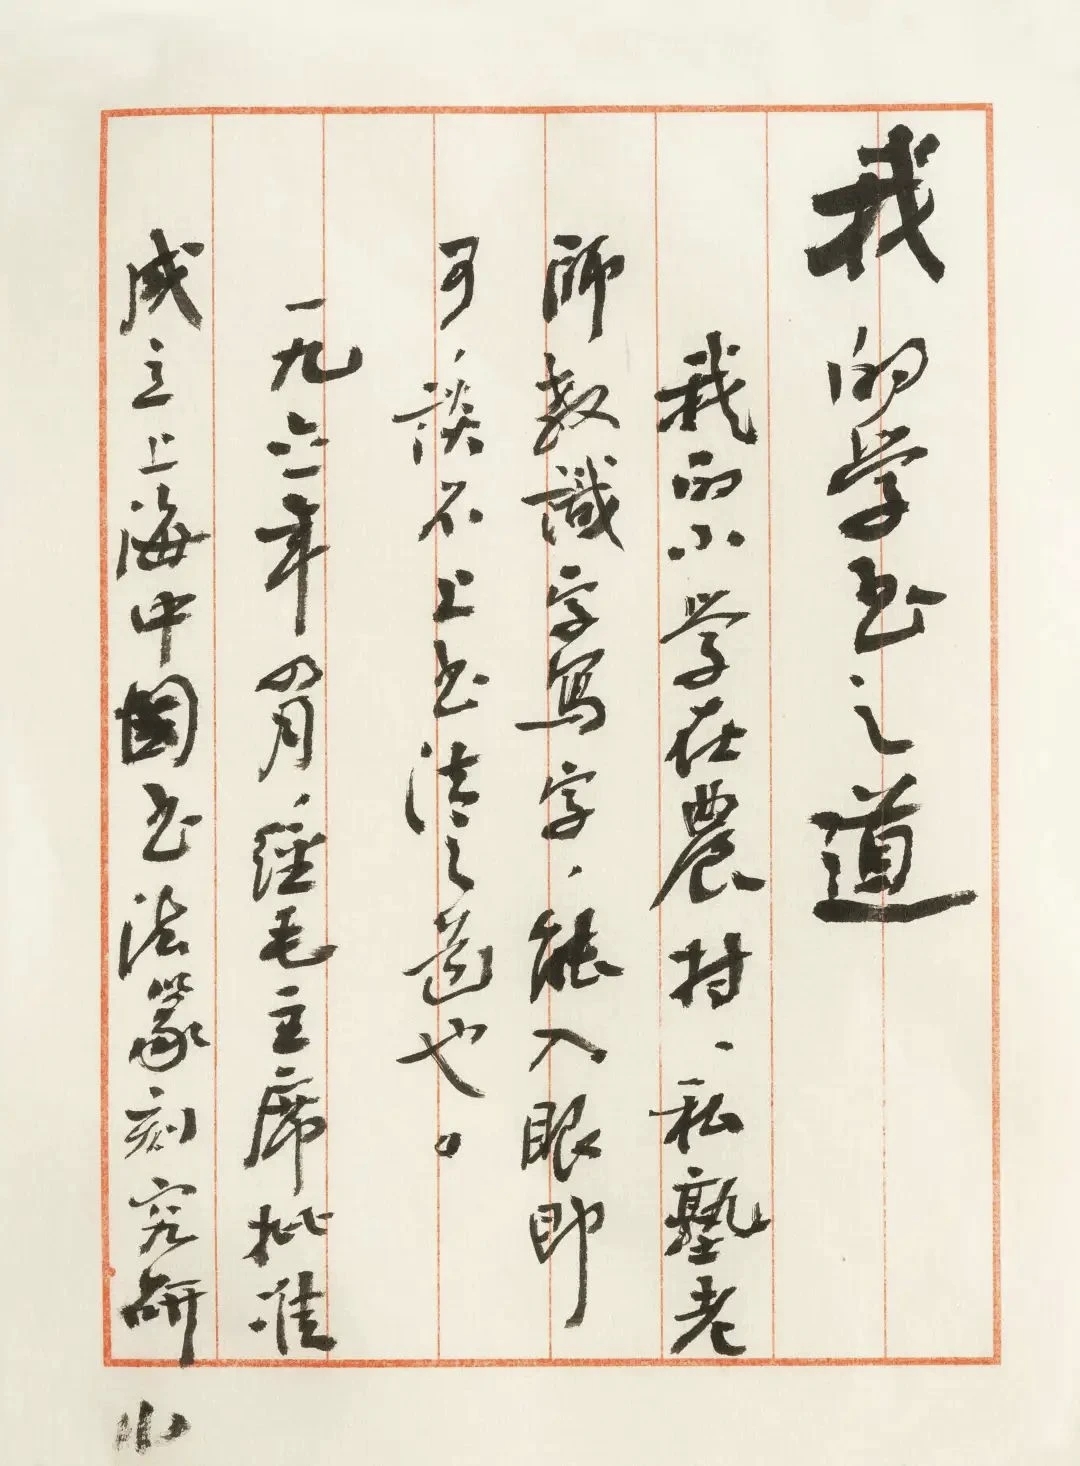 我的学书之道
我的小学在農村、私塾老
師教識字寫字，能入眼即
可，談不上书法之道也。
一九六一年四月，經毛主席批准
成立上海中國书法篆刻究研
小